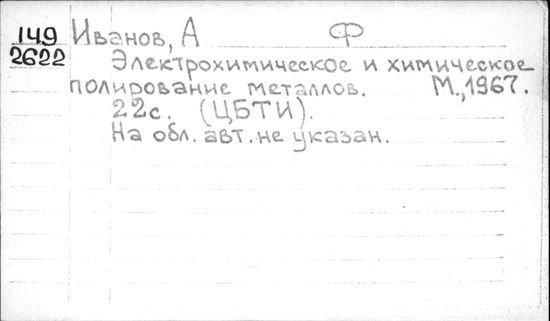 149 Иванов, А Ф
2622 Электрохимическое и химическое
полирование металлов. М., 1967.
22с. (ЦБТИ).
На обл. авт. не указан.